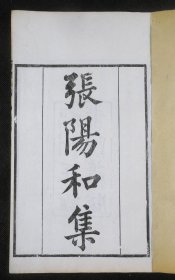 張陽和集